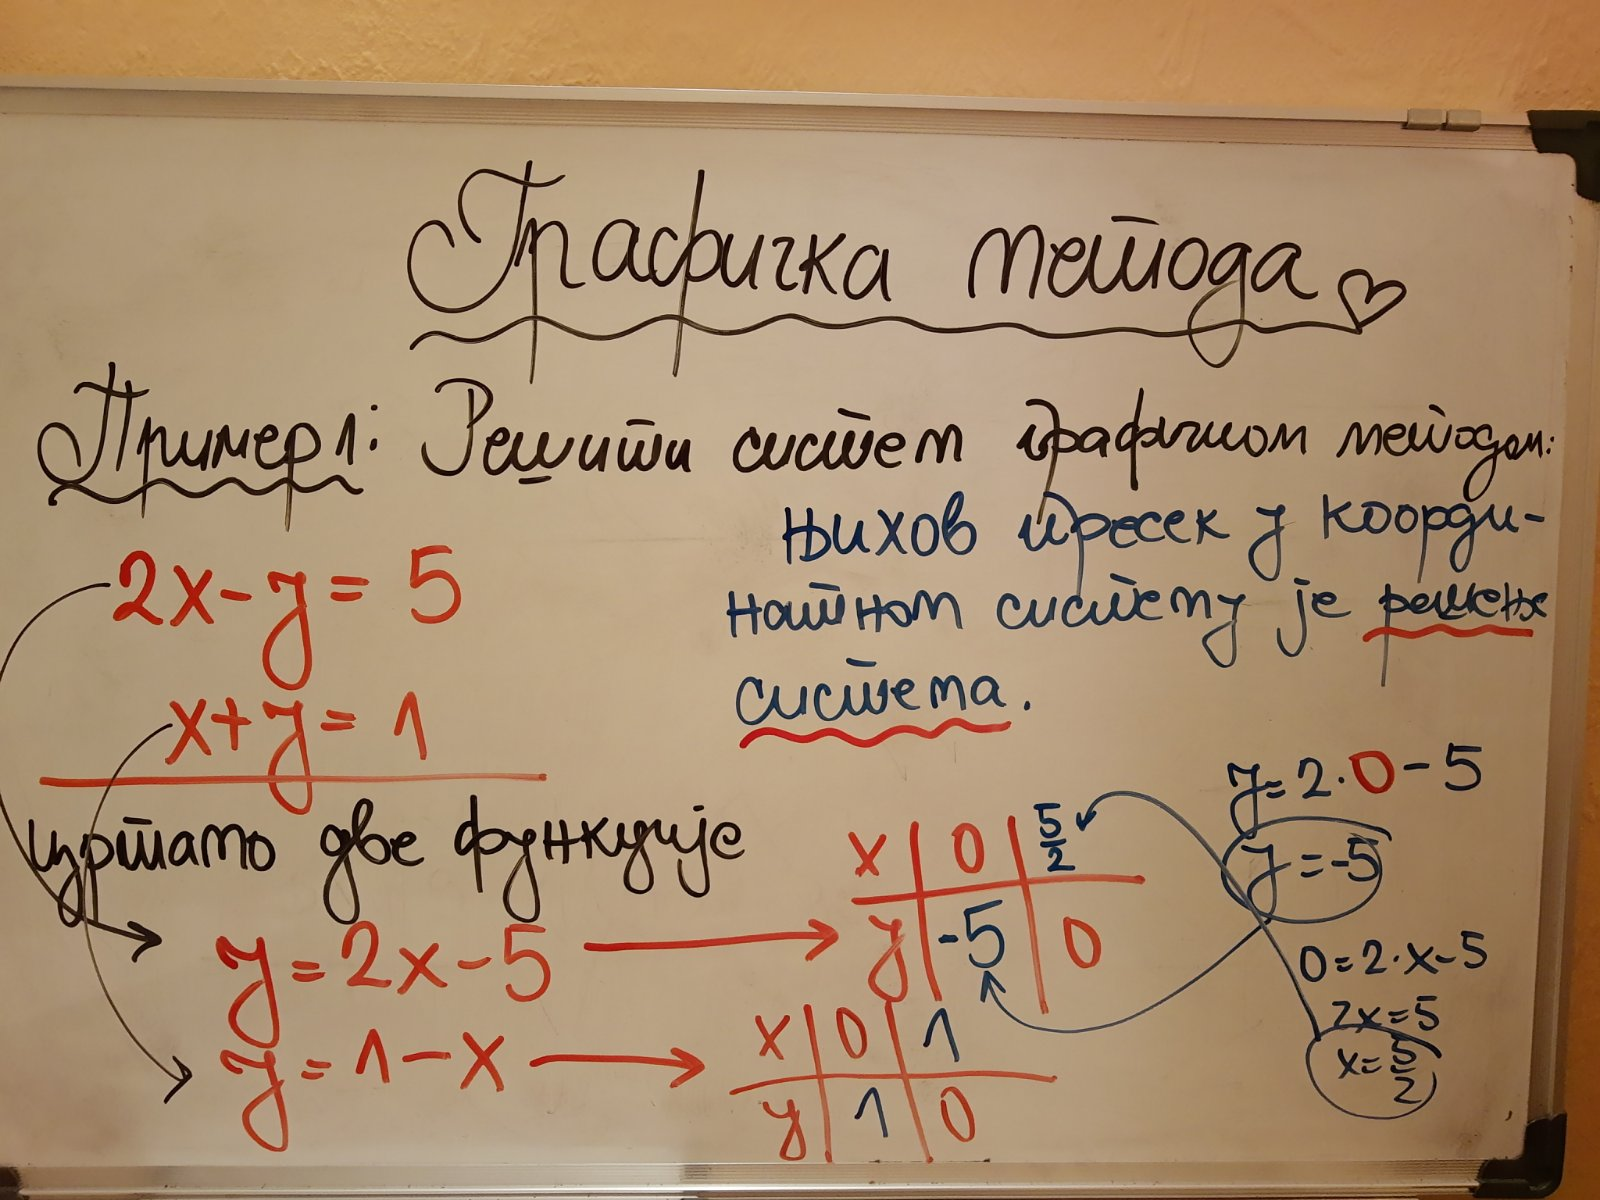 Графичка метода
Пример 1: Решити систем графичком методом:
2x - y = 5
x + y = 1
Њихов пресек у коорди-
натном систему је решење
система.
цртамо две функције
y = 2x - 5
y = 1 - x
x | 0 | 5/2
y | -5 | 0
x | 0 | 1
y | 1 | 0
y = 2·0 - 5
y = -5
0 = 2·x - 5
2x = 5
x = 5/2